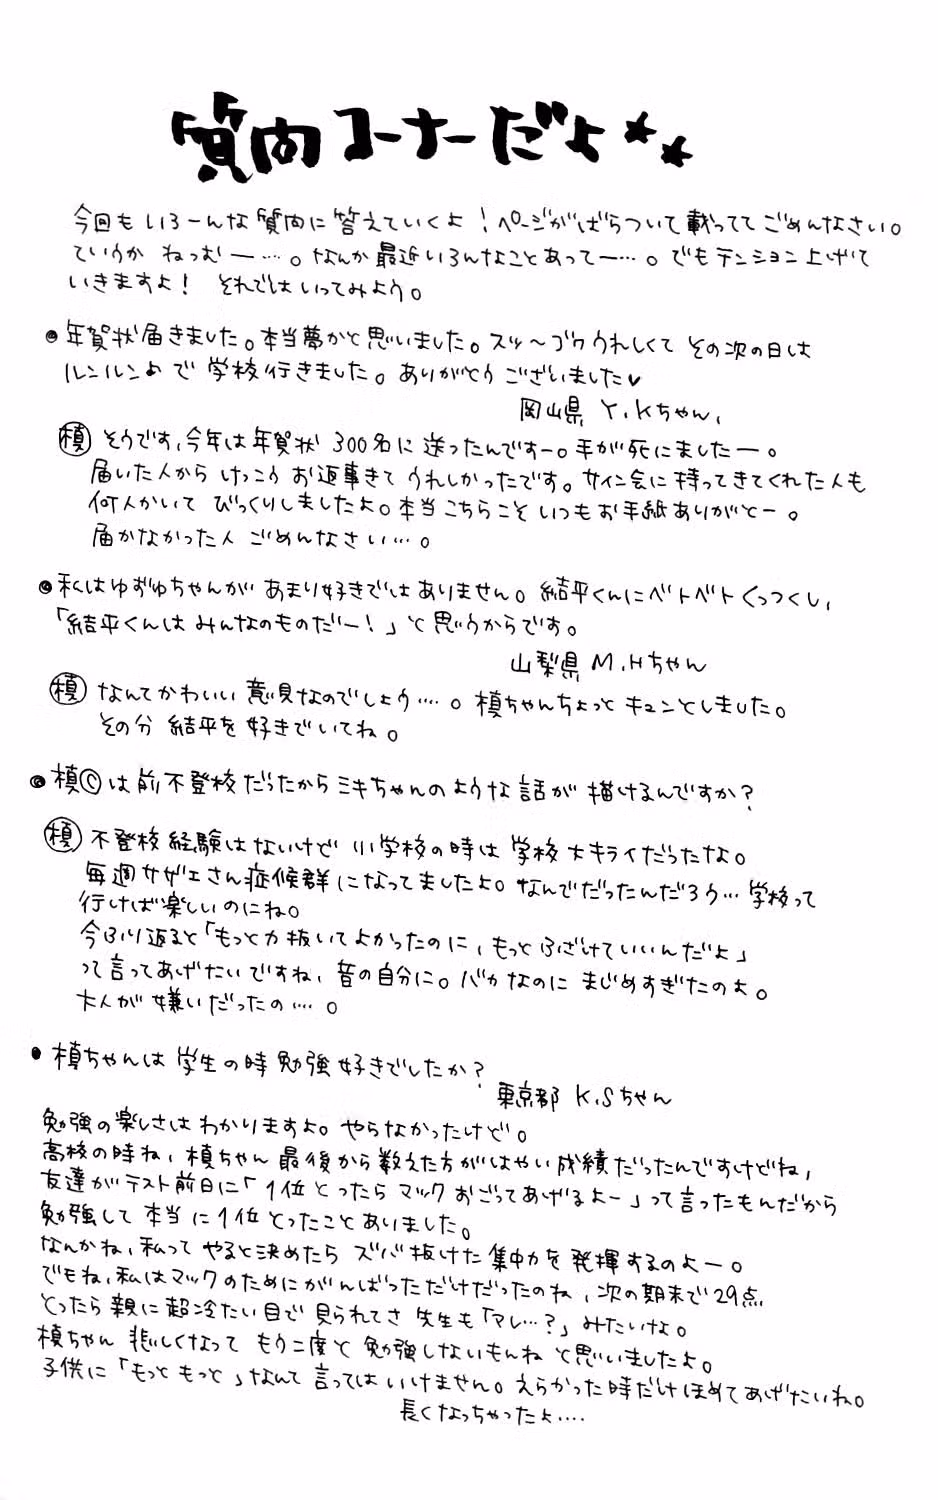 質問コーナーだよ★★
今回もいろーんな質問に答えていくよ！ページがばらついて載っててごめんなさい。
ていうかねっむー…。なんか最近いろんなことあってー…。でもテンション上げて
いきますよ！それではいってみよう。
●年賀状届きました。本当夢かと思いました。スッ〜ゴクうれしくてその次の日は
ルンルンμで学校行きました。ありがとうございました♥
岡山県 Y.Kちゃん.
槙 そうです、今年は年賀状300名に送ったんですー。手が死にましたー。
届いた人からけっこうお返事きてうれしかったです。サイン会に持ってきてくれた人も
何人かいてびっくりしましたよ。本当こちらこそいつもお手紙ありがとー。
届かなかった人ごめんなさい…。
●私はゆずゆちゃんがあまり好きではありません。結平くんにベトベトくっつくし、
「結平くんはみんなのものだー！」と思うからです。
山梨県 M.Hちゃん
槙 なんてかわいい意見なのでしょう…。槙ちゃんちょっとキュンとしました。
その分結平を好きでいてね。
●槙Ⓢは前不登校だったからミキちゃんのような話が描けるんですか？
槙 不登校経験はないけど小学校の時は学校大キライだったな。
毎週サザエさん症候群になってましたよ。なんでだったんだろう…学校って
行けば楽しいのにね。
今ふり返ると「もっと力抜いてよかったのに、もっとふざけていいんだよ」
って言ってあげたいですね、昔の自分に。バカなのにまじめすぎたのよ。
大人が嫌いだったの…。
●槙ちゃんは学生の時勉強好きでしたか？
東京都 K.Sちゃん
勉強の楽しさはわかりますよ。やらなかったけど。
高校の時ね、槙ちゃん最後から数えた方がはやい成績だったんですけどね、
友達がテスト前日に「1位とったらマックおごってあげるよー」って言ったもんだから
勉強して本当に1位とったことありました。
なんかね、私ってやると決めたらズバ抜けた集中力を発揮するのよー。
でもね、私はマックのためにがんばっただけだったのね、次の期末で29点
とったら親に超冷たい目で見られてさ先生も「アレ…？」みたいな。
槙ちゃん悲しくなってもう二度と勉強しないもんねと思いましたよ。
子供に「もっともっと」なんて言ってはいけません。えらかった時だけほめてあげたいね。
長くなっちゃったよ…